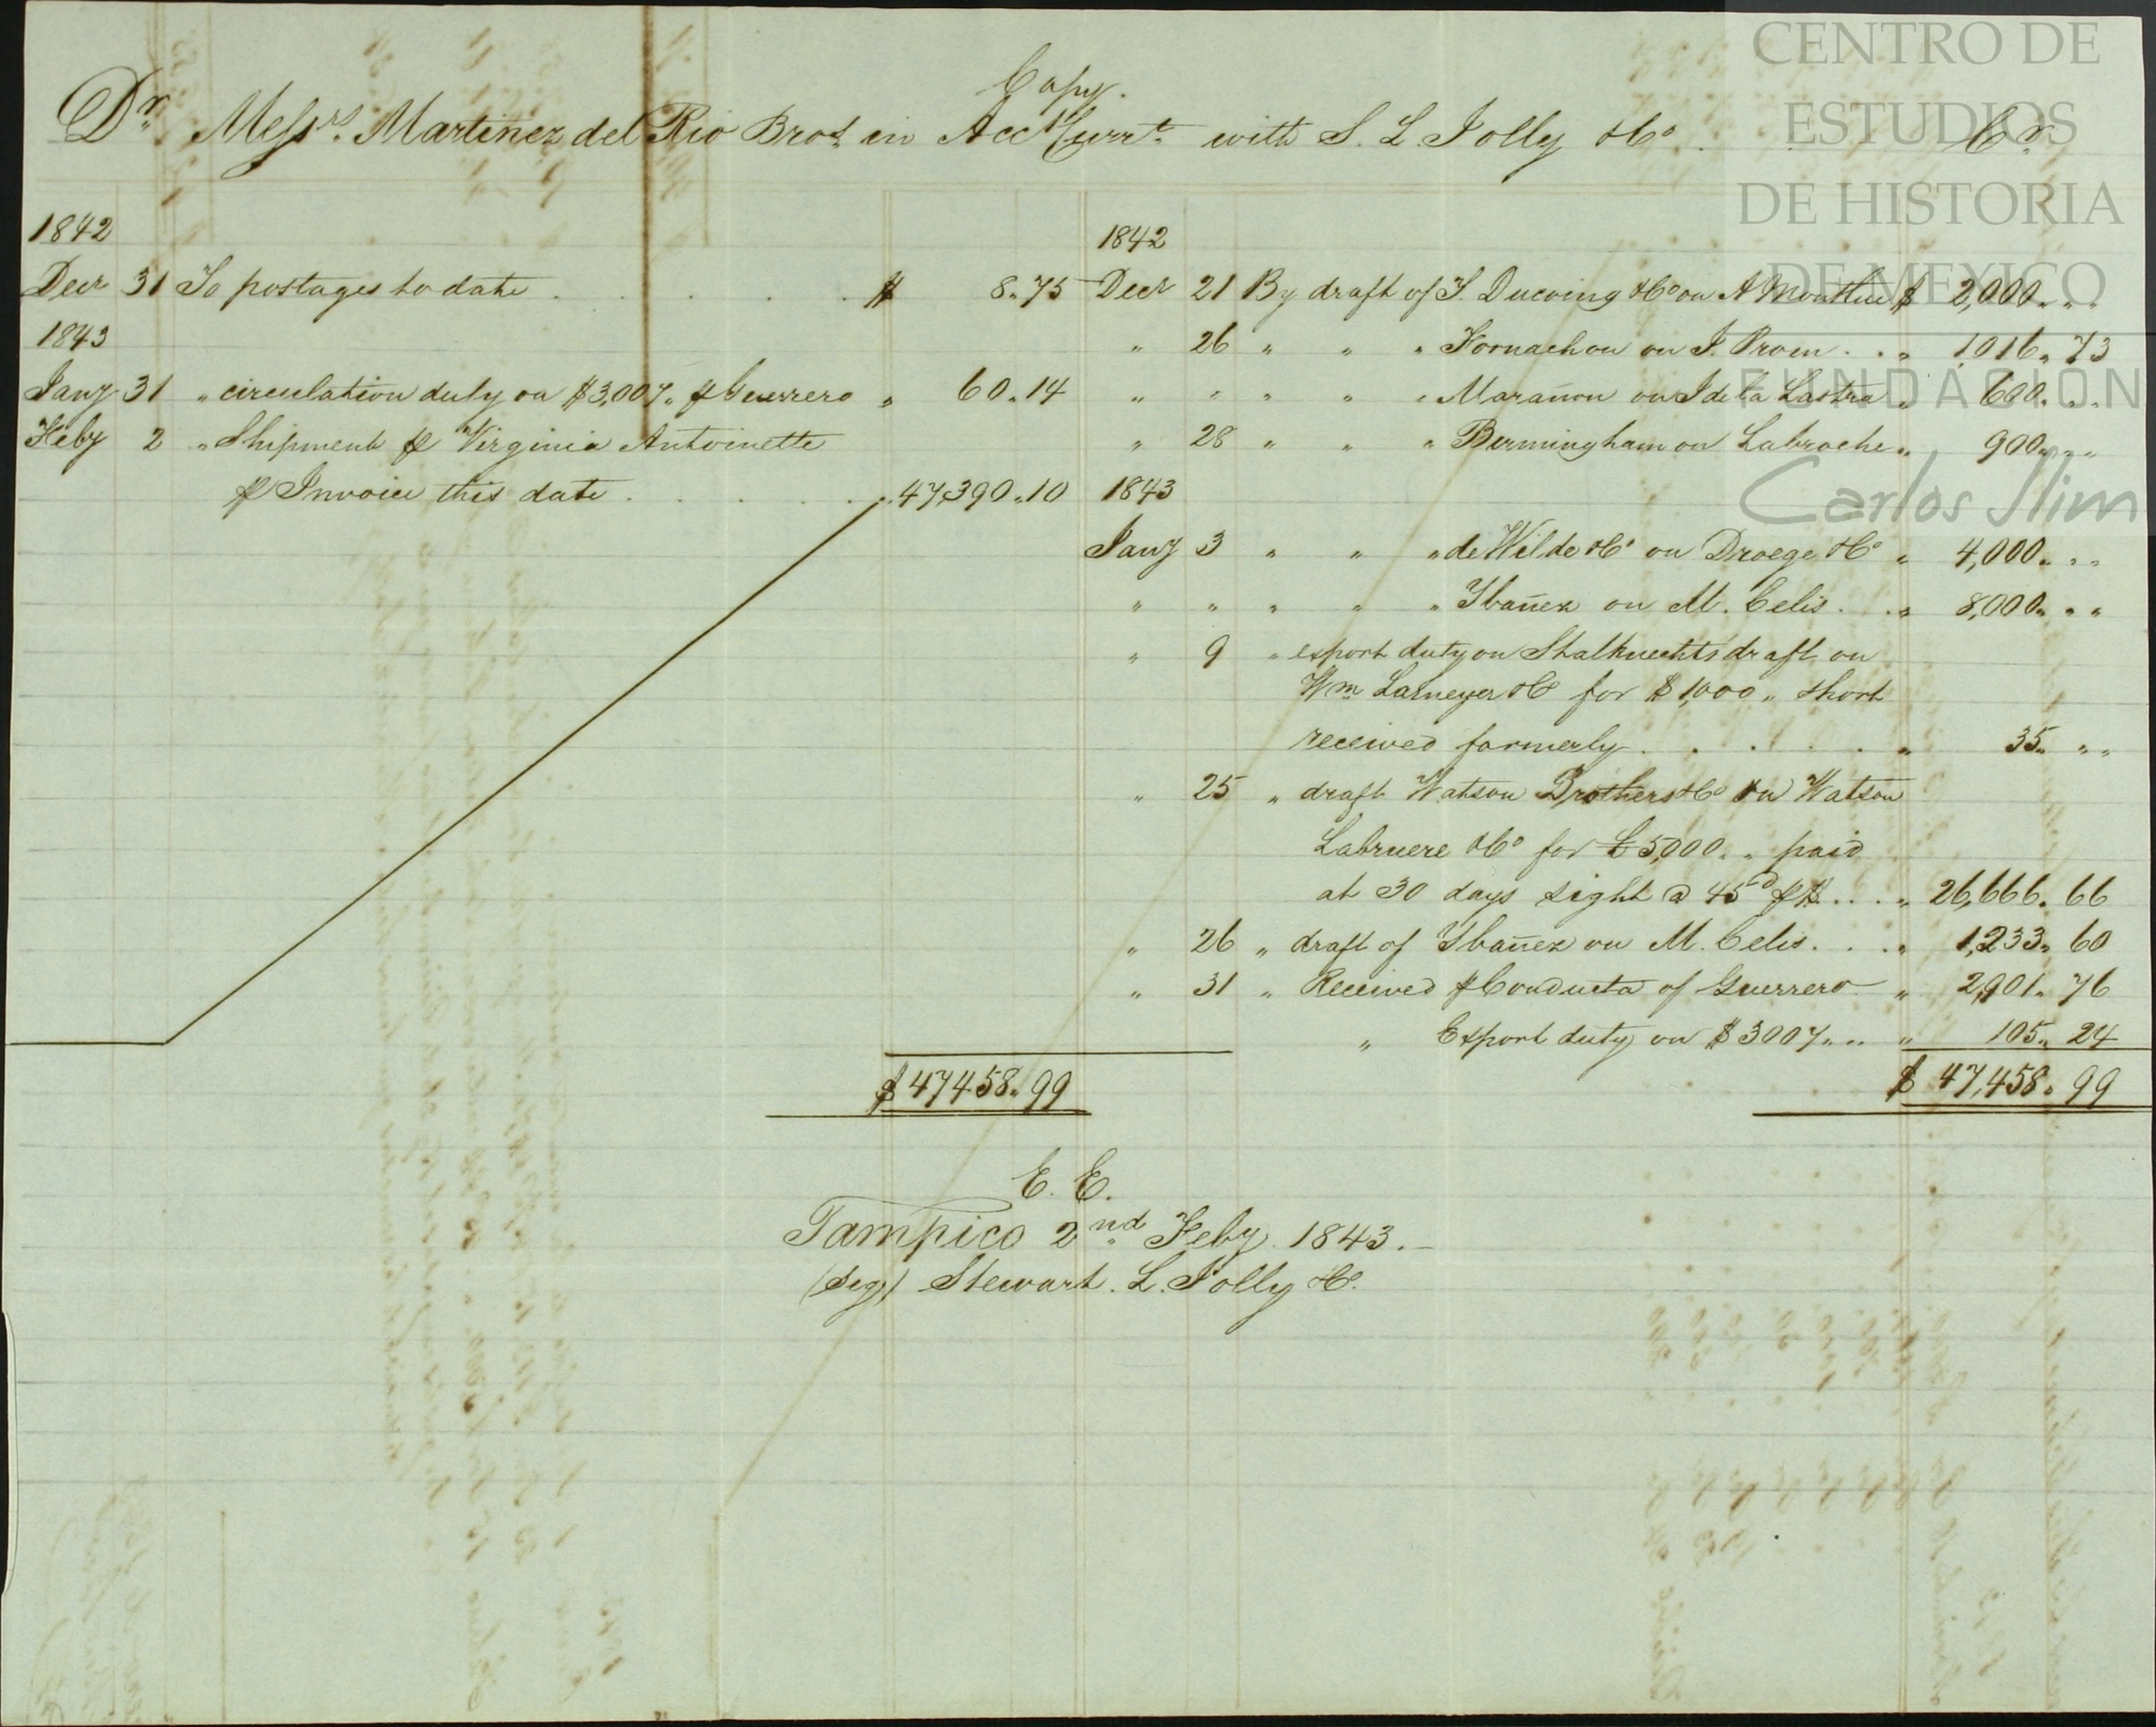 Copy.
Dr. Messrs. Martinez del Rio Bros. in Acct Currt. with S. L. Jolly &Co. Cr.
1842
Decr 31 To postages to date . . . . . . $ 8.75
1843
Jany 31 " circulation duty on $3,007" p Guerrero " 60.14
Feby 2 " Shipment p Virginia Antoinette
p Invoice this date . . . . . " 47,390.10
$ 47458.99
1842
Decr 21 By draft of J. Ducoing &Co on A $ 2,000 " "
" 26 " " " Fornachon on J. Prom . . " 1,016.73
" " " " " Marañon on J de la Lastra " 600 " "
" 28 " " " Bermingham on Labroche " 900 " "
1843
Jany 3 " " " de Wilde &Co on Droege &Co " 4,000 " "
" " " " " Ybañez on M. Celis . . " 8,000 " "
" 9 " export duty on Stalknechts draft on
Wm Larneyer &Co for $1,000 " short
received formerly . . . . . " 35 " "
" 25 " draft Watson Brothers &Co on Watson
Labruere &Co for £5,000 " " paid
at 30 days sight @ 45d p $ . . . " 26,666.66
" 26 " draft of Ybañez on M. Celis . . . " 1,233.60
" 31 " Received p Conducta of Guerrero " 2,901.76
" Export duty on $3007 " " " 105.24
$ 47,458.99
E. E.
Tampico 2nd Feby. 1843.
(Sig) Stewart. L. Jolly &Co.
CENTRO DE
ESTUDIOS
DE HISTORIA
DE MEXICO
FUNDACIÓN
Carlos Slim